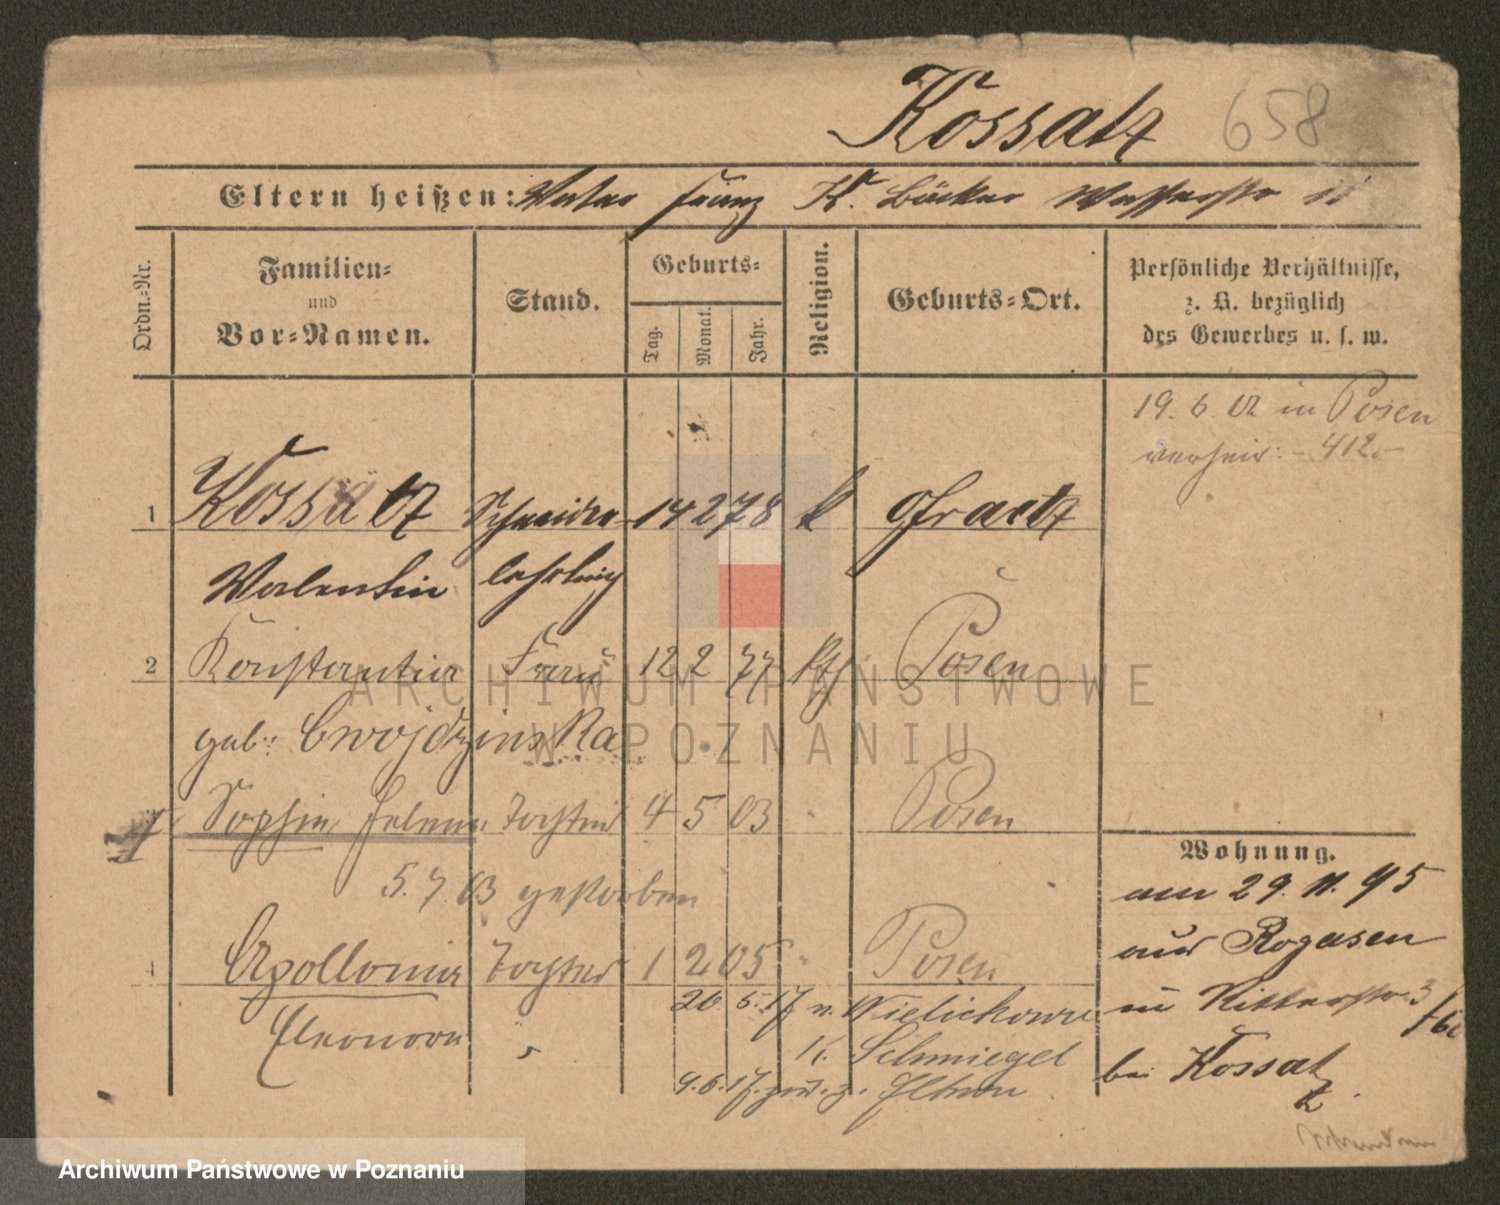 Kossatz 658
Eltern heißen: Vater Franz K. Bäcker Wasserstr
Ordn.-Nr.
Familien-
und
Vor-Namen.
Stand.
Geburts-
Tag.
Monat.
Jahr.
Religion.
Geburts-Ort.
Persönliche Verhältnisse,
z. B. bezüglich
des Gewerbes u. s. w.
19. 6. 02 in Posen
verheir. - 412.-
1 Kossatz Schneider- 14 2 78 k Graetz
Valentin lehrling
2 Konstantia Frau 12 2 77 kth Posen
geb. Cwojdzinska
Sophie Helena Tochter 4 5 03 " Posen
5. 7. 03 gestorben
4 Apollonia Tochter 1 2 05 " Posen
Eleonora "
26 5. 17 n. Wielichowo
K. Schmiegel
9. 6. 17. zur. z. Eltern
Wohnung.
am 29. 11. 95
aus Rogasen
in Ritterstr. 3
bei Kossatz
ARCHIWUM PAŃSTWOWE
W POZNANIU
Archiwum Państwowe w Poznaniu